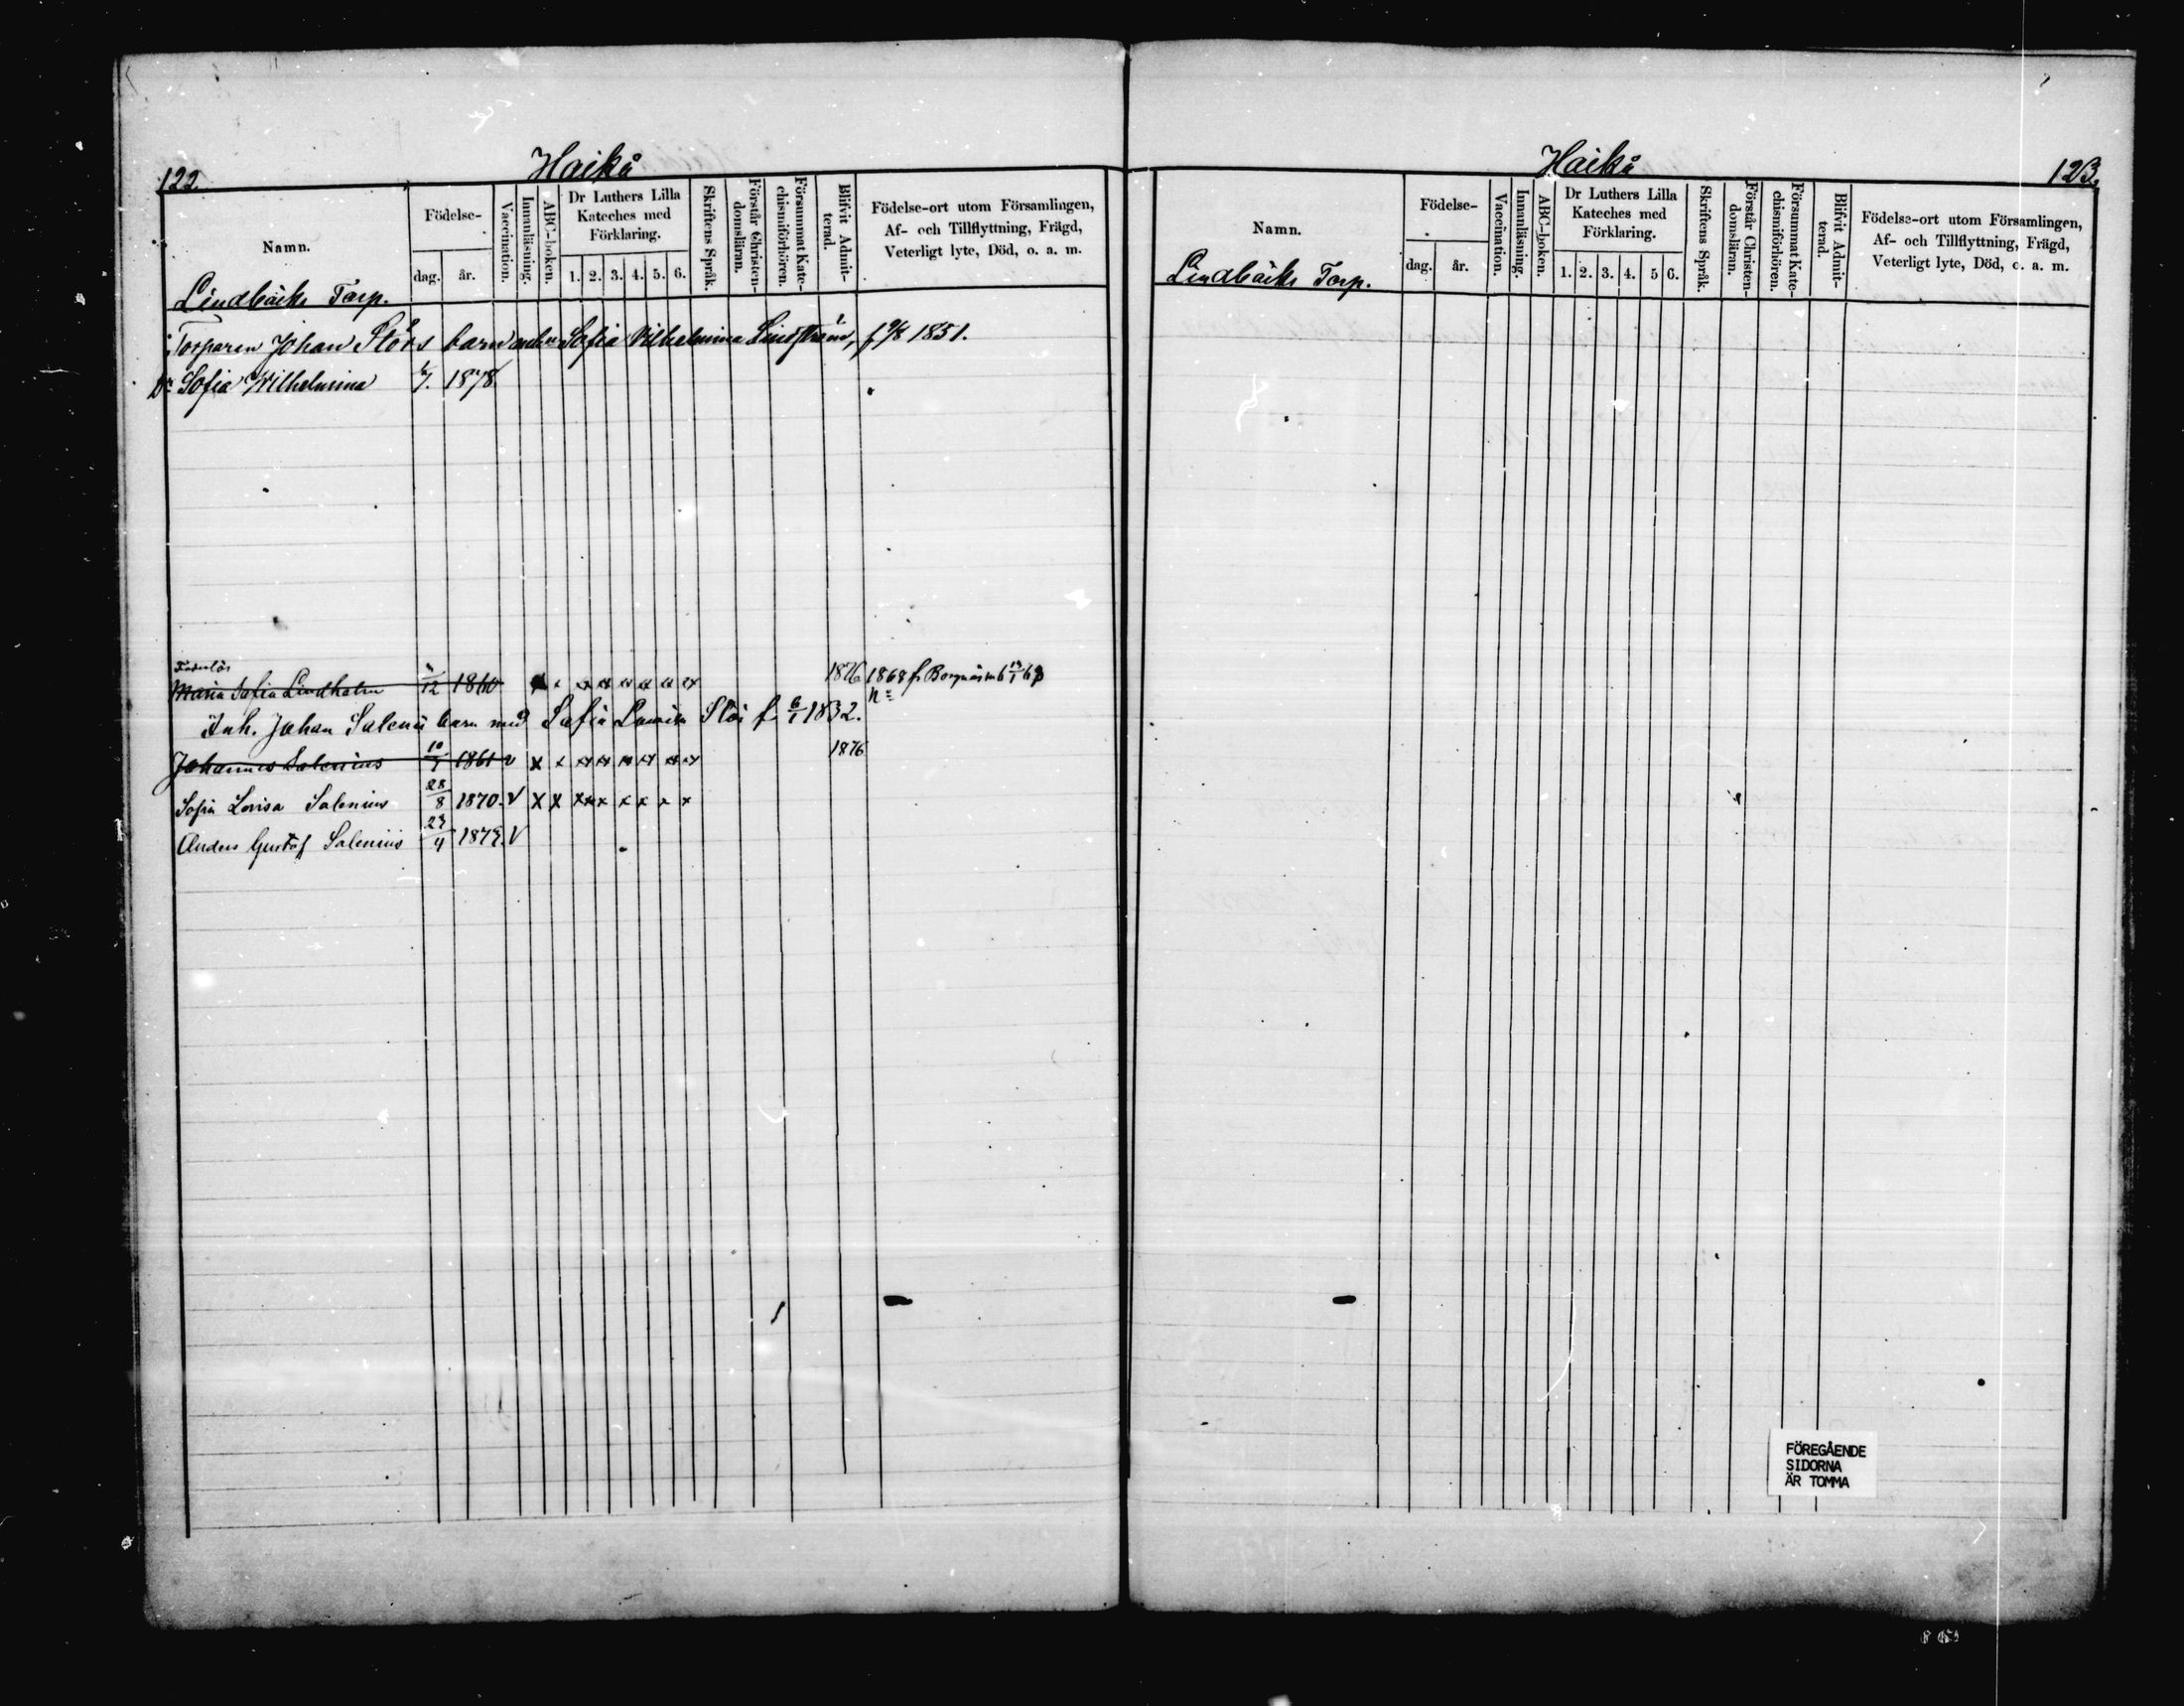 122
Haikå
Namn.
Födelse-
dag.
år.
Vaccination.
Innanläsning.
ABC-boken.
Dr Luthers Lilla
Kateches med
Förklaring.
1. 2. 3. 4. 5. 6.
Skriftens Språk.
Förstår Christen-
domsläran.
Försummat Kate-
chismiförhören.
Blifvit Admit-
terad.
Födelse-ort utom Församlingen,
Af- och Tillflyttning, Frägd,
Veterligt lyte, Död, o. a. m.
Lindbäcks Torp.
Torparen Johan Slörs barn Sofia Vilhelmina Lindström, f 1851.
Dr Sofia Wilhelmina 1878
Faderlös
Maria Sofia Lindholm 12 1860 x x x x x x x x 1876 1868 fr
Inh. Johan Salenii barn med Sofia Lovisa Slör f. 6/1 1832.
Johannes Salenius 10 1861 v x x x x x x x x 1876
Sofia Lovisa Salenius 28/8 1870. V X X x x x x x x x
Anders Gustaf Salenius 187 V
Haikå
123.
Namn.
Födelse-
dag.
år.
Vaccination.
Innanläsning.
ABC-boken.
Dr Luthers Lilla
Kateches med
Förklaring.
1. 2. 3. 4. 5 6.
Skriftens Språk.
Förstår Christen-
domsläran.
Försummat Kate-
chismiförhören.
Blifvit Admit-
terad.
Födelse-ort utom Församlingen,
Af- och Tillflyttning, Frägd,
Veterligt lyte, Död, o. a. m.
Lindbäcks Torp.
FÖREGÅENDE
SIDORNA
ÄR TOMMA